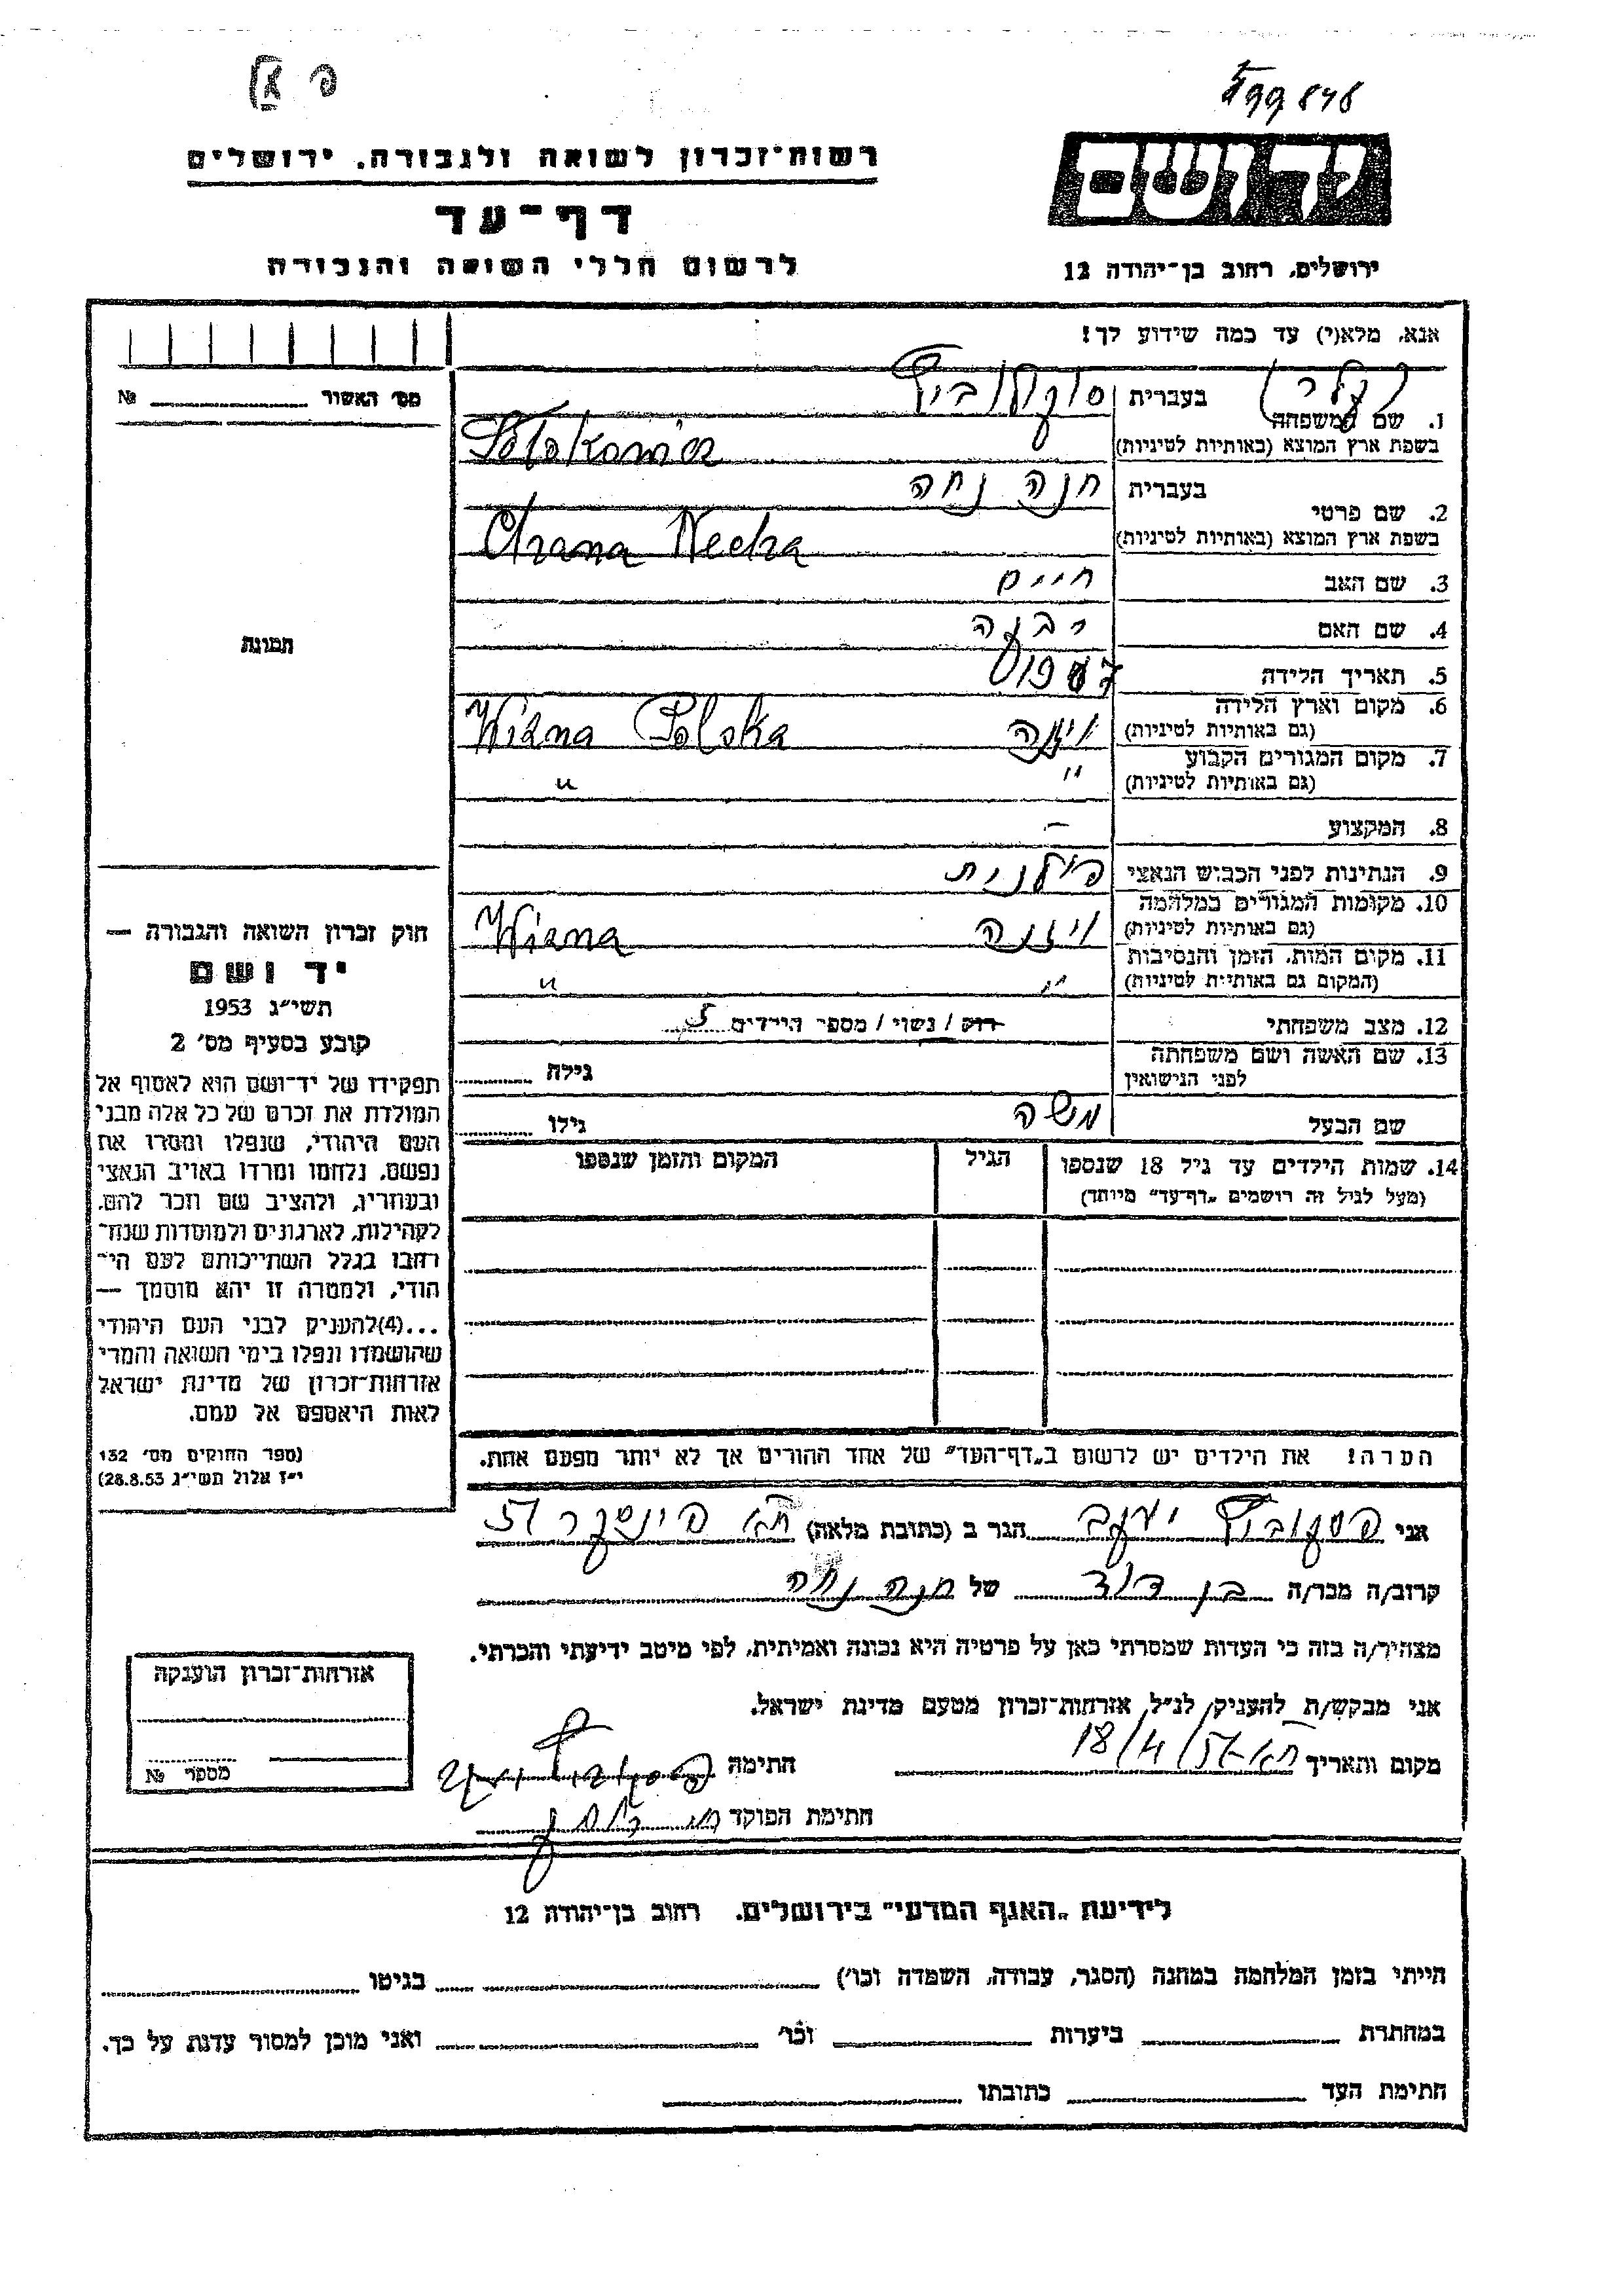 פ
רשות־זכרון לשואה ולגבורה. ירושלים
דף־עד
לרשום חללי השואה והגבורה
ידושם
ירושלים, רחוב בן־יהודה 12
אנא, מלא(י) עד כמה שידוע לך!
מס׳ האשור № ______
תמונה
1. שם המשפחה
בעברית
בשפת ארץ המוצא (באותיות לטיניות)
2. שם פרטי
בעברית חנה נחה
בשפת ארץ המוצא (באותיות לטיניות) Chana Necha
3. שם האב חיים
4. שם האם
5. תאריך הלידה
6. מקום וארץ הלידה
(גם באותיות לטיניות) Wizna Polska ויזנה
7. מקום המגורים הקבוע
(גם באותיות לטיניות) " "
8. המקצוע –
9. הנתינות לפני הכבוש הנאצי פולנית
10. מקומות המגורים במלחמה
(גם באותיות לטיניות) Wizna ויזנה
11. מקום המות, הזמן והנסיבות
(המקום גם באותיות לטיניות) " "
12. מצב משפחתי רוק / נשוי / מספר הילדים 5
13. שם האשה ושם משפחתה
לפני הנישואין גילה
שם הבעל משה גילו
14. שמות הילדים עד גיל 18 שנספו הגיל המקום והזמן שנספו
(מעל לגיל זה רושמים „דף־עד" מיוחד)
הערה! את הילדים יש לרשום ב„דף־העד" של אחד ההורים אך לא יותר מפעם אחת.
חוק זכרון השואה והגבורה —
יד ושם
תשי״ג 1953
קובע בסעיף מס׳ 2
תפקידו של יד־ושם הוא לאסוף אל
המולדת את זכרם של כל אלה מבני
העם היהודי, שנפלו ומסרו את
נפשם. נלחמו ומרדו באויב הנאצי
ובעוזריו, ולהציב שם וזכר להם,
לקהילות, לארגונים ולמוסדות שנח־
רבו בגלל השתייכותם לעם הי־
הודי, ולמטרה זו יהא מוסמך —
...(4)להעניק לבני העם היהודי
שהושמדו ונפלו בימי השואה והמרי
אזרחות־זכרון של מדינת ישראל
לאות היאספם אל עמם.
(ספר החוקים מס׳ 132
י״ז אלול תשי״ג 28.8.53)
אני יעקב הגר ב (כתובת מלאה) ת״א פינסקר 51
קרוב/ה מכר/ה בן דוד של חנה נחה
מצהיר/ה בזה כי העדות שמסרתי כאן על פרטיה היא נכונה ואמיתית, לפי מיטב ידיעתי והכרתי.
אני מבקש/ת להעניק לנ״ל אזרחות־זכרון מטעם מדינת ישראל.
מקום ותאריך ת״א 18/4/57 חתימה
חתימת הפוקד
אזרחות־זכרון הוענקה
מספר №
לידיעת „האגף המדעי" בירושלים. רחוב בן־יהודה 12
הייתי בזמן המלחמה במחנה (הסגר, עבודה, השמדה וכו׳) ______ בגיטו ______
במחתרת ______ ביערות ______ וכו׳ ______ ואני מוכן למסור עדות על כך.
חתימת העד ______ כתובתו ______